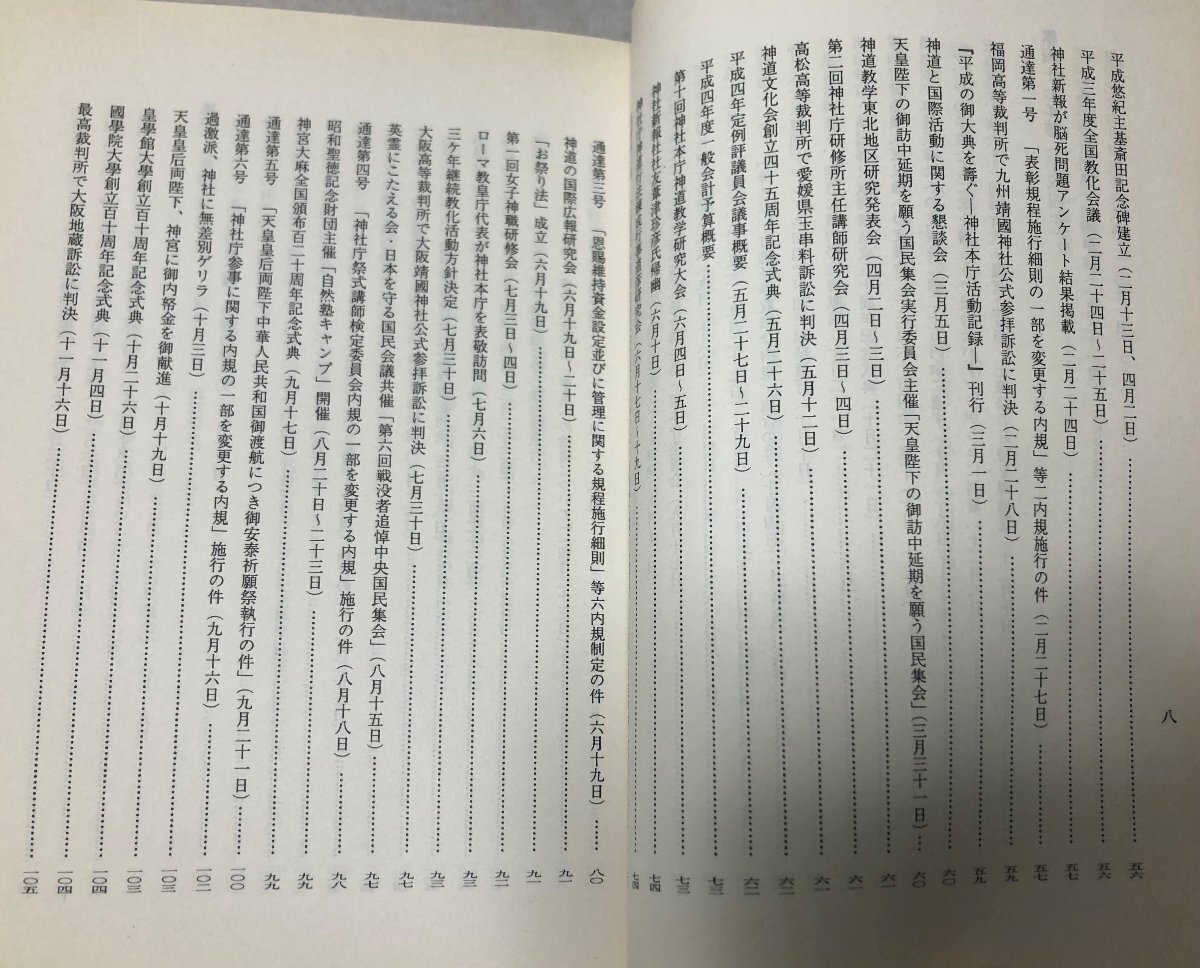 平成悠紀主基斎田記念碑建立(二月十三日、四月二日)……五六
平成三年度全国教化会議(二月二十四日~二十五日)……五六
神社新報が脳死問題アンケート結果掲載(二月二十四日)……五七
通達第一号 「表彰規程施行細則の一部を変更する内規」等二内規施行の件(二月二十七日)……五七
福岡高等裁判所で九州靖國神社公式参拝訴訟に判決(二月二十八日)……五九
『平成の御大典を壽ぐ―神社本庁活動記録―』刊行(三月一日)……五九
神道と国際活動に関する懇談会(三月五日)……六〇
天皇陛下の御訪中延期を願う国民集会実行委員会主催「天皇陛下の御訪中延期を願う国民集会」(三月三十一日)……六〇
神道教学東北地区研究発表会(四月二日~三日)……六一
第二回神社庁研修所主任講師研究会(四月三日~四日)……六一
高松高等裁判所で愛媛県玉串料訴訟に判決(五月十二日)……六一
神道文化会創立四十五周年記念式典(五月二十六日)……六二
平成四年定例評議員会議事概要(五月二十七日~二十九日)……六二
平成四年度一般会計予算概要……七三
第十回神社本庁神道教学研究大会(六月四日~五日)……七三
神社新報社社友葦津珍彦氏帰幽(六月十日)……七四
八
通達第三号 「恩賜維持資金設定並びに管理に関する規程施行細則」等六内規制定の件(六月十九日)……八〇
神道の国際広報研究会(六月十九日~二十日)……九一
「お祭り法」成立(六月十九日)……九一
第一回女子神職研修会(七月三日~四日)……九二
ローマ教皇庁代表が神社本庁を表敬訪問(七月六日)……九三
三ケ年継続教化活動方針決定(七月三十日)……九三
大阪高等裁判所で大阪靖國神社公式参拝訴訟に判決(七月三十日)……九七
英霊にこたえる会・日本を守る国民会議共催「第六回戦没者追悼中央国民集会」(八月十五日)……九七
通達第四号 「神社庁祭式講師検定委員会内規の一部を変更する内規」施行の件(八月十八日)……九八
昭和聖徳記念財団主催「自然塾キャンプ」開催(八月二十日~二十三日)……九九
神宮大麻全国頒布百二十周年記念式典(九月十七日)……九九
通達第五号 「天皇皇后両陛下中華人民共和国御渡航につき御安泰祈願祭執行の件」(九月二十一日)……一〇〇
通達第六号 「神社庁参事に関する内規の一部を変更する内規」施行の件(九月十六日)……一〇二
過激派、神社に無差別ゲリラ(十月三日)……一〇三
天皇皇后両陛下、神宮に御内帑金を御献進(十月十九日)……一〇三
皇學館大學創立百十周年記念式典(十月二十六日)……一〇四
國學院大學創立百十周年記念式典(十一月四日)……一〇四
最高裁判所で大阪地蔵訴訟に判決(十一月十六日)……一〇五